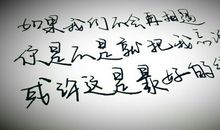 如果我们不会再相遇
你是不是就把我忘
或许这是最好的